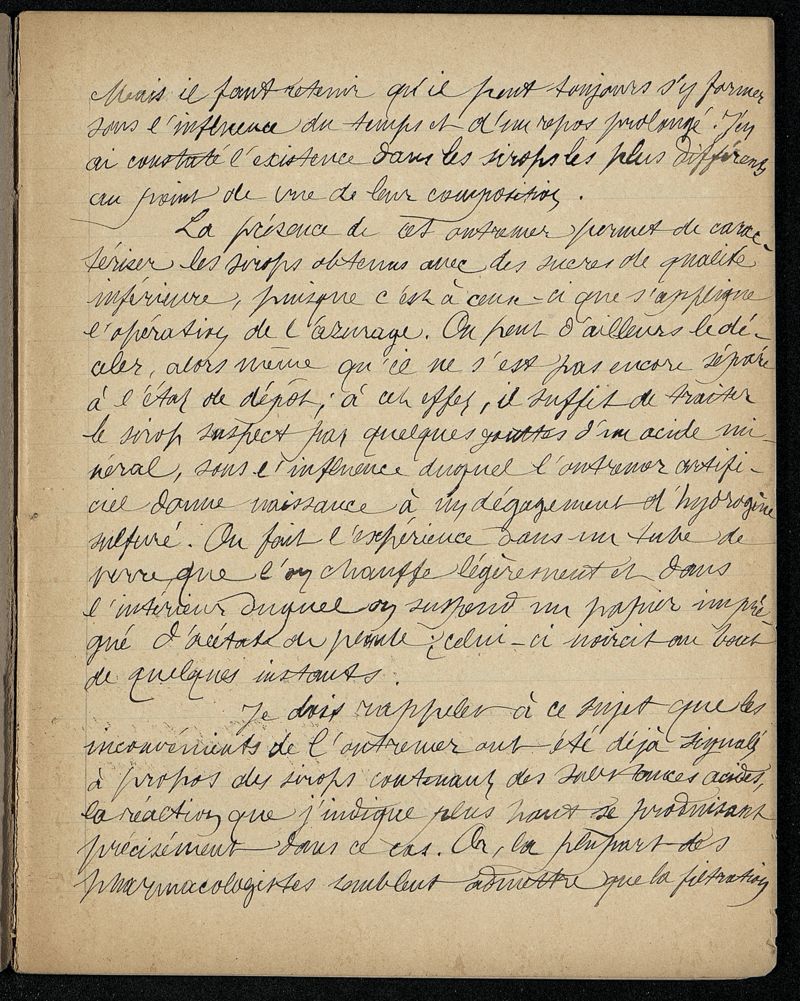 Mais il faut retenir qu'il peut toujours s'y former
sous l'influence du temps et d'un repos prolongé. J'en
ai constaté l'existence dans les sirops les plus différents
au point de vue de leur composition.
La présence de cet outremer permet de carac-
tériser les sirops obtenus avec des sucres de qualité
inférieure, puisque c'est à ceux-ci que s'applique
l'opération de l'azurage. On peut d'ailleurs le dé-
celer, alors même qu'il ne s'est pas encore séparé
à l'état de dépôt; à cet effet, il suffit de traiter
le sirop suspect par quelques gouttes d'un acide mi-
néral, sous l'influence duquel l'outremer artifi-
ciel donne naissance à un dégagement d'hydrogène
sulfuré. On fait l'expérience dans un tube de
verre que l'on chauffe légèrement et dans
l'intérieur duquel on suspend un papier impré-
gné d'acétate de plomb; celui-ci noircit au bout
de quelques instants.
Je dois rappeler à ce sujet que les
inconvénients de l'outremer ont été déjà signalés
à propos des sirops contenant des substances acides,
la réaction que j'indique plus haut se produisant
précisément dans ce cas. Or, la plupart des
pharmacologistes semblent admettre que la filtration